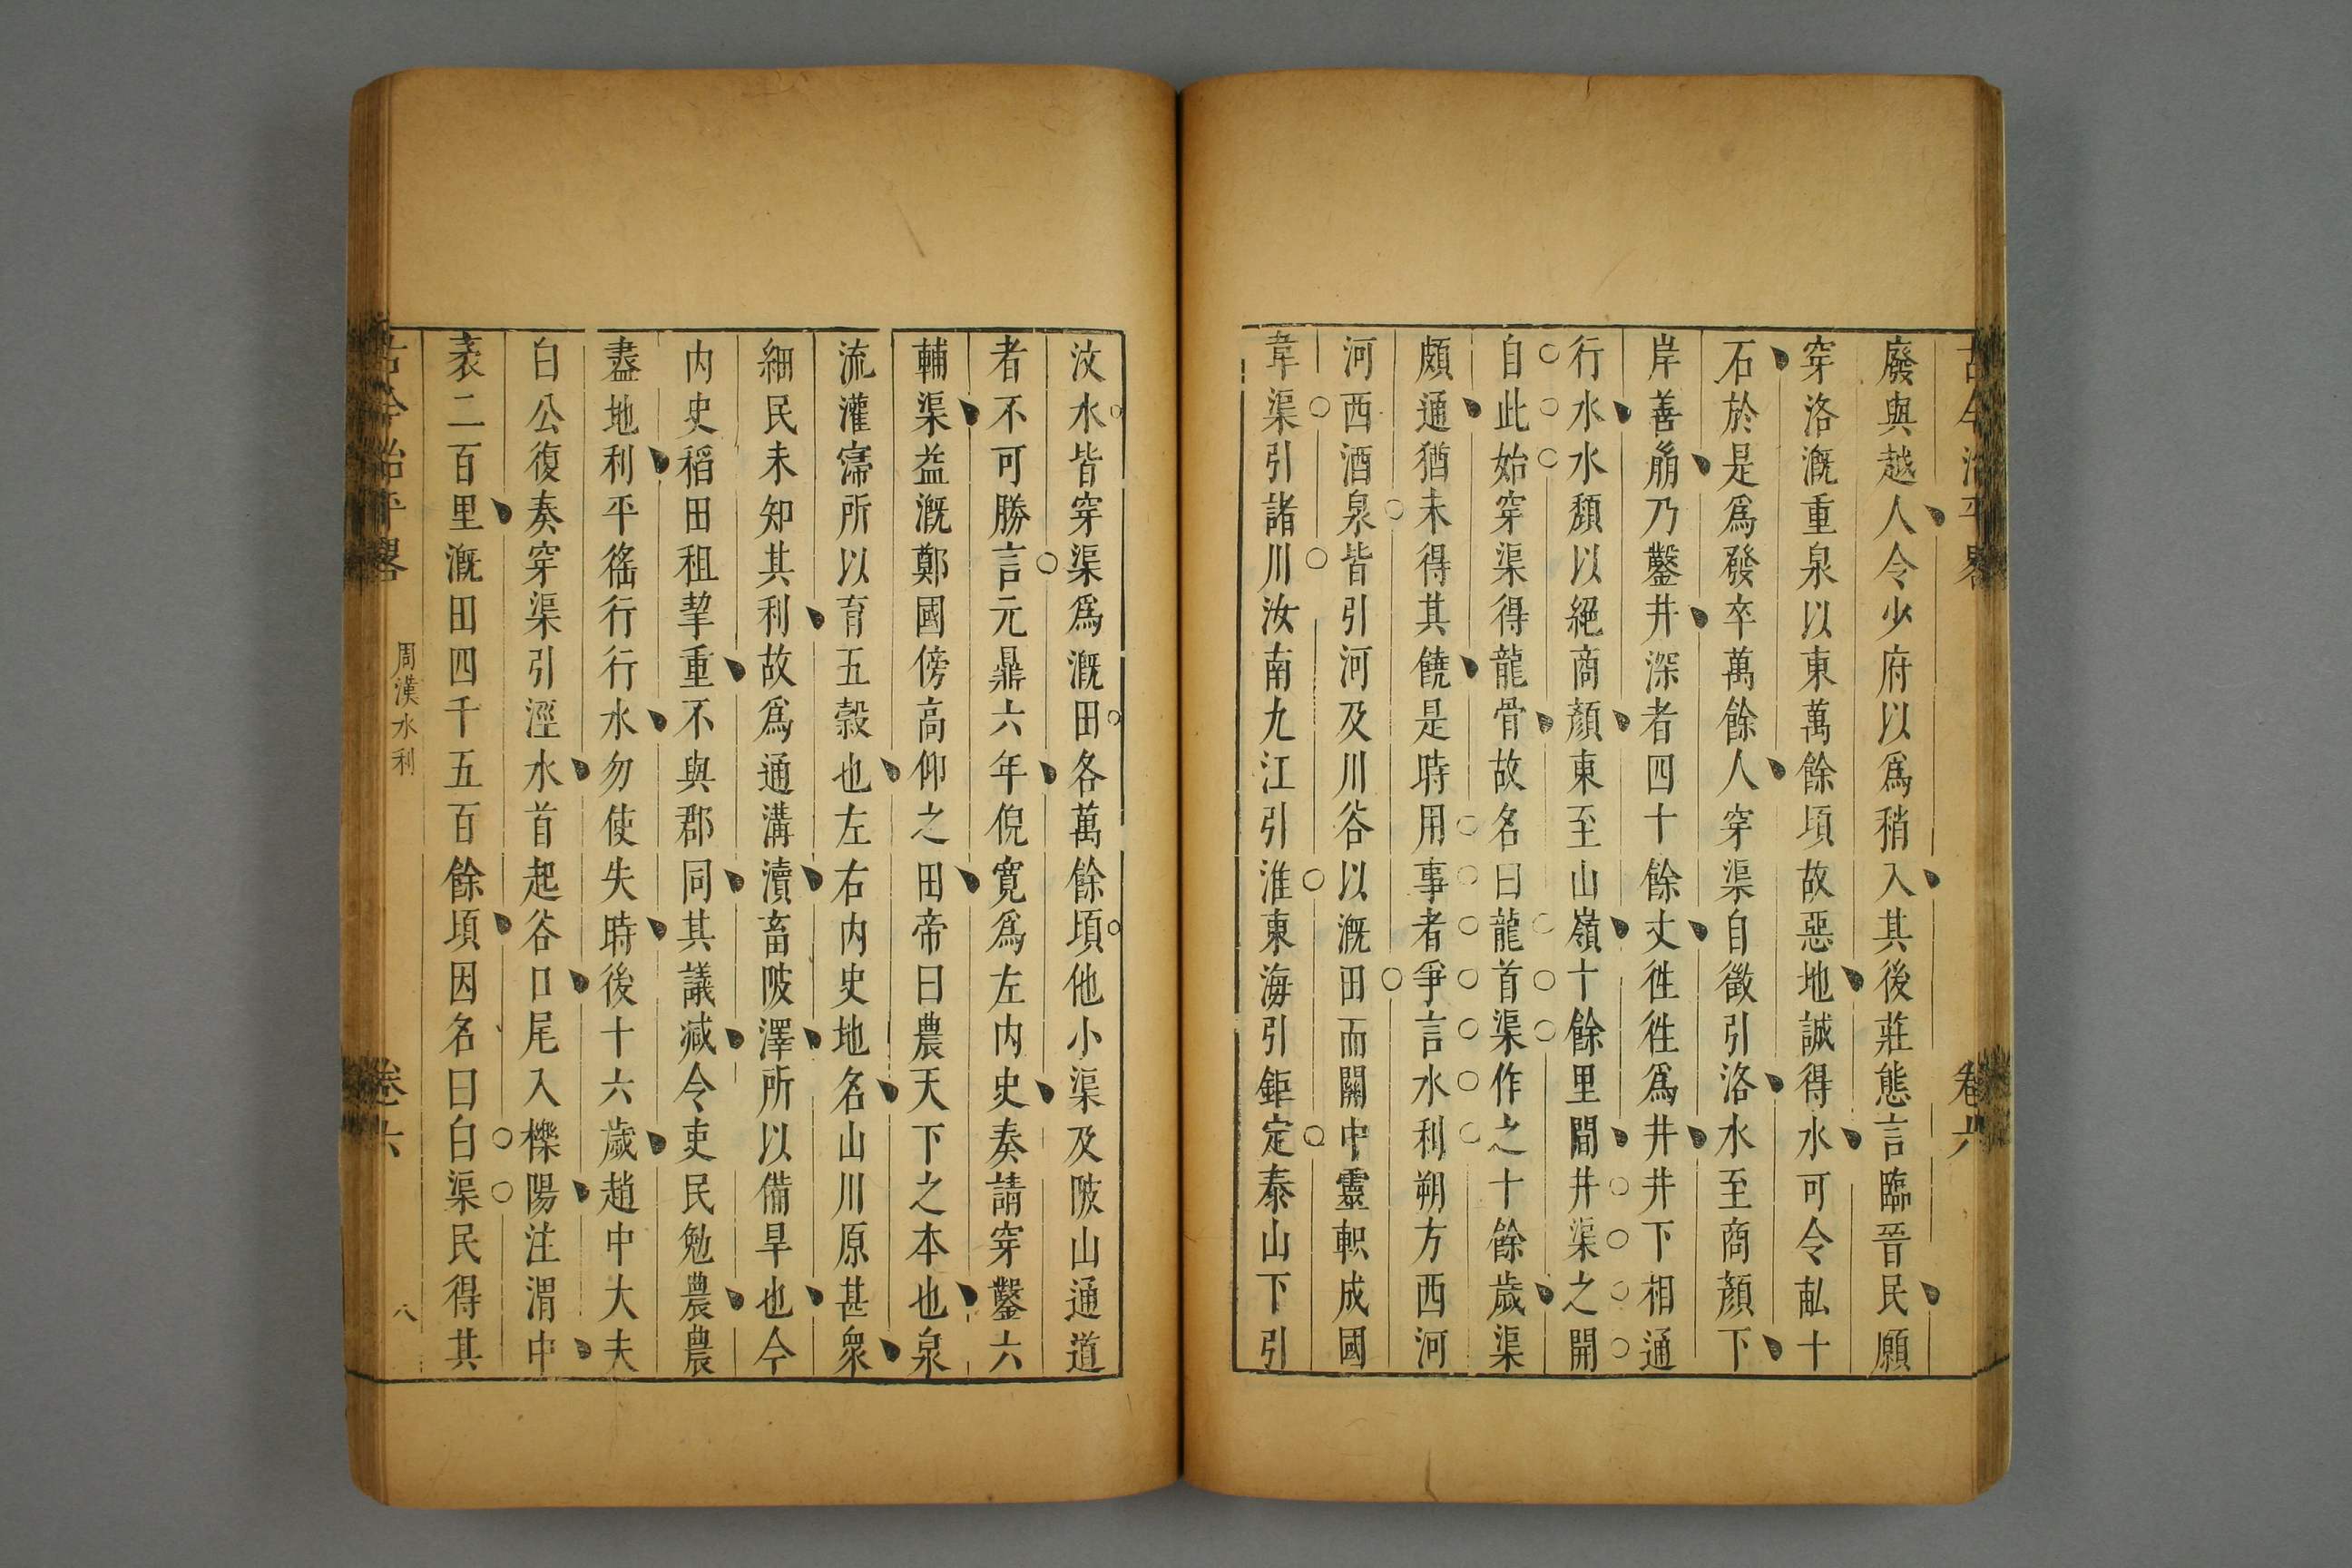 廢與越人令少府以爲稍入其後莊態言臨晉民願
穿洛漑重泉以東萬餘頃故惡地誠得水可令畝十
石於是爲發卒萬餘人穿渠自徵引洛水至商顏下
岸善崩乃鑿井深者四十餘丈徃徃爲井井下相通
行水水頹以絕商顏東至山嶺十餘里間井渠之開
自此始穿渠得龍骨故名曰龍首渠作之十餘歲渠
頗通猶未得其饒是時用事者爭言水利朔方西河
河西酒泉皆引河及川谷以漑田而關中靈軹成國
韋渠引諸川汝南九江引淮東海引鉅定泰山下引
汶水皆穿渠爲漑田各萬餘頃他小渠及陂山通道
者不可勝言元鼎六年倪寬爲左内史奏請穿鑿六
輔渠益漑鄭國傍高仰之田帝曰農天下之本也泉
流灌寖所以育五穀也左右内史地名山川原甚衆
細民未知其利故爲通溝瀆畜陂澤所以備旱也今
内史稻田租挈重不與郡同其議减令吏民勉農農
盡地利平徭行行水勿使失時後十六歲趙中大夫
白公復奏穿渠引涇水首起谷口尾入櫟陽注渭中
袤二百里漑田四千五百餘頃因名曰白渠民得其
古今治平畧
周漢水利
卷六
八